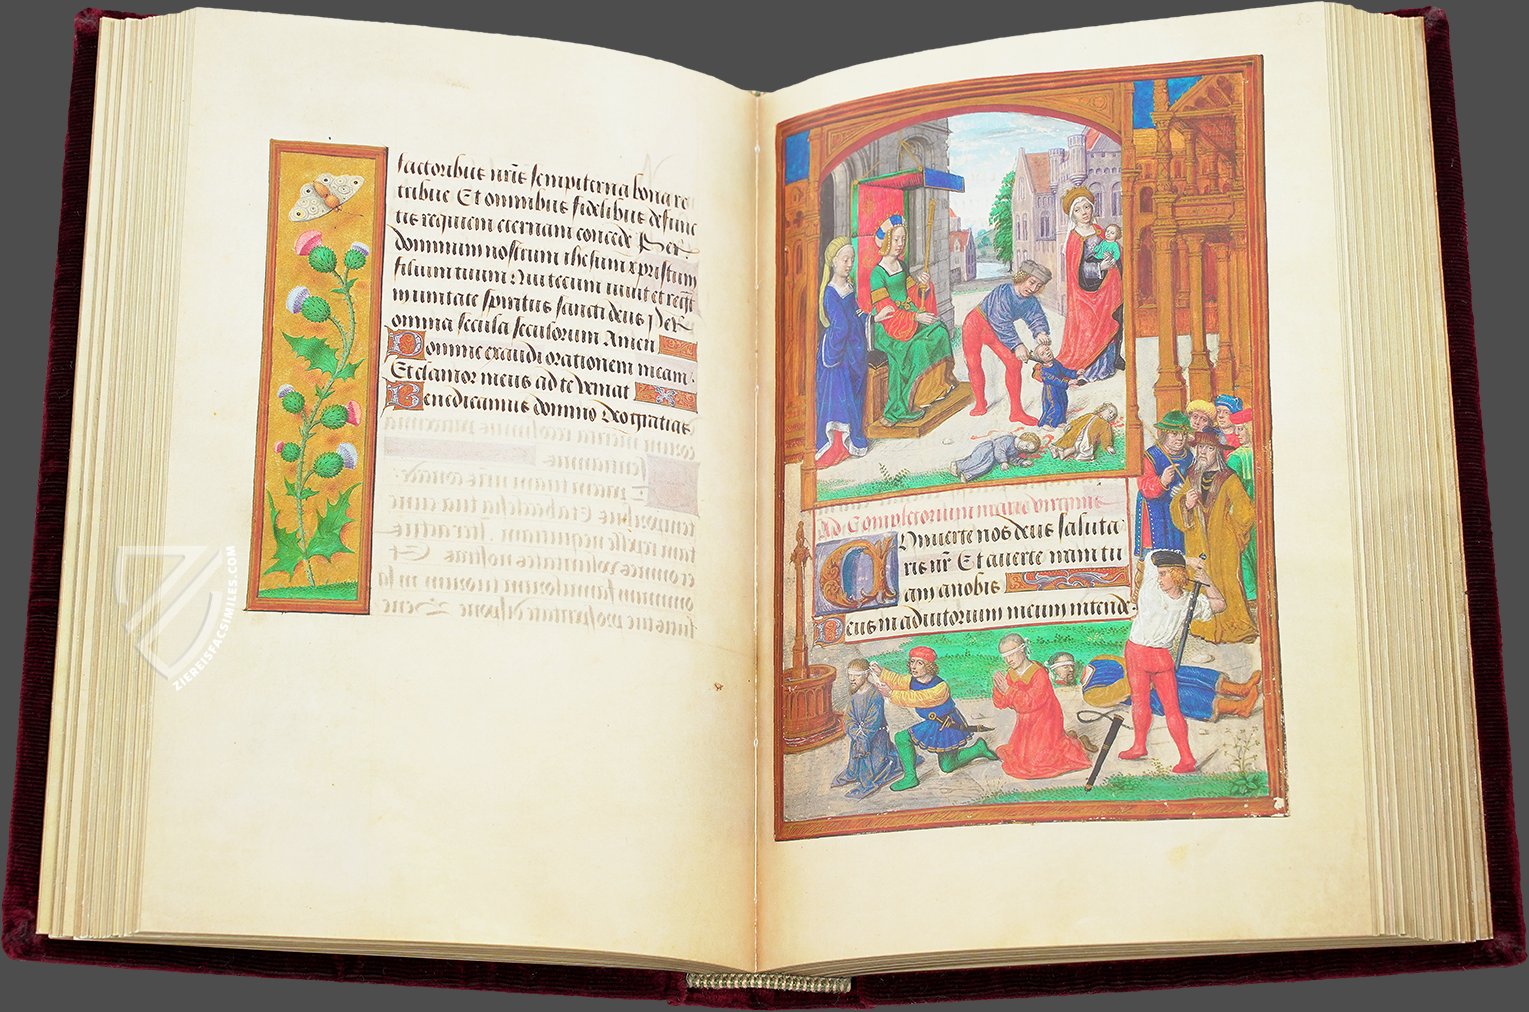 factoribus nr̄is sempiterna bona re
tribue Et omnibus fidelibus defunc
tis requiem eternam concede Per
dominum nostrum ihesum xpristum
filium tuum Qui tecum uiuit et regt̄
in unitate spiritus sancti deus Per
omnia secula seculorum Amen
Domine exaudi orationem meam
Et clamor meus ad te veniat
Benedicamus domino Deo gratias
Ad Completorium marie virginis
Conuerte nos deus saluta
ris nr̄ Et auerte iram tu
am a nobis
Deus in adiutorium meum intende
ZIEREISFACSIMILES.COM